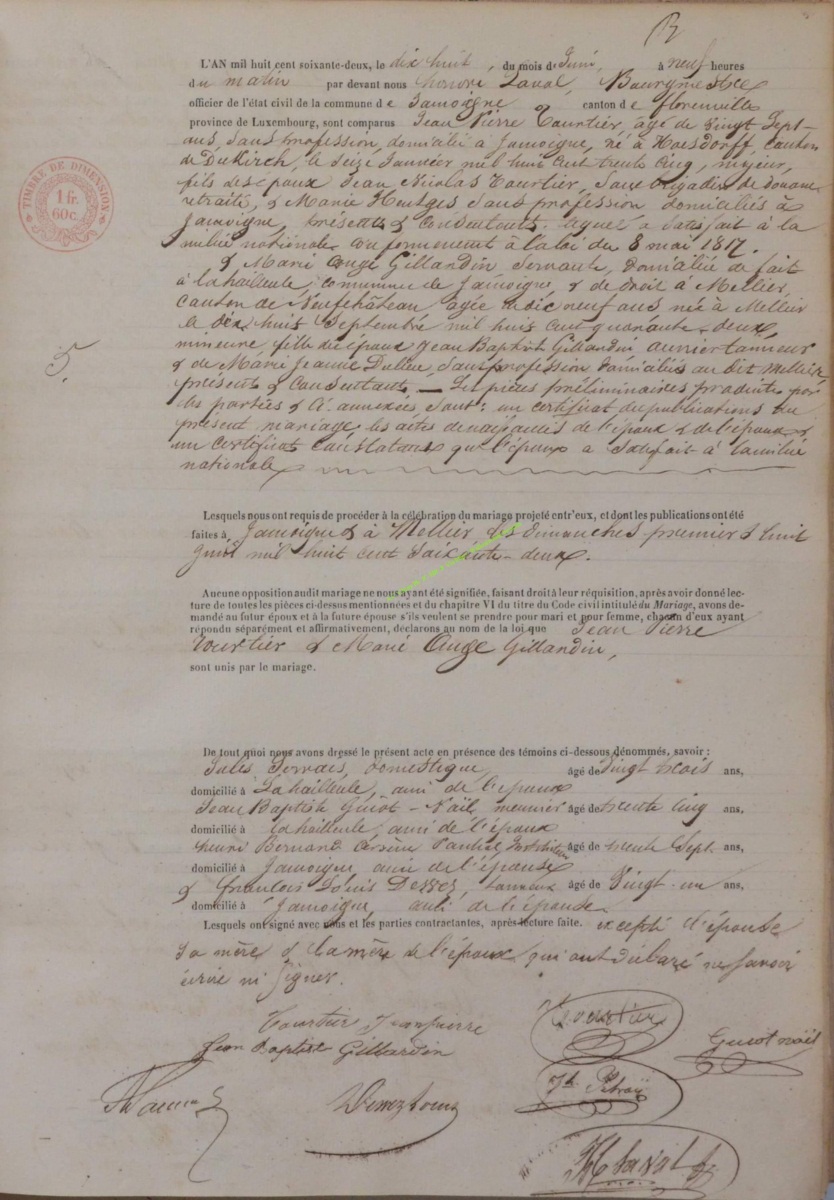 L'AN mil huit cent soixante-deux, le dix huit, du mois de Juin, à neuf heures
du matin par devant nous honoré Laval, Bourgmestre
officier de l'état civil de la commune de Jamoigne canton de florenville
province de Luxembourg, sont comparus Jean Pierre Tourtier, age de Vingt Sept
ans, Sans profession, domicilié à Jamoigne, né à Hoesdorff Canton
de Diekirch, le Seize Janvier mil huit cent trente cinq, majeur,
fils des époux Jean Nicolas Tourtier, Sous brigadier de douane
retraité, & Marie Hentges Sans profession domiciliés à
Jamoigne, présents & Consentants lequel a Satisfait à la
milice nationale Conformement à la loi du 8 mai 1817.
& Marie Ange Gillardin Servante, Domiciliée de fait
à lahailleule, Commune de Jamoigne, & de droit à Mellier,
Canton de Neufchâteau agée de dix neuf ans, née à Mellier
le dix huit Septembre mil huit cent quarante deux,
mineure fille des époux Jean Baptiste Gillardin, ouvrier tanneur
& de Marie Jeanne Sans profession domiciliés au dit Mellier
présents & Consentants — Les pièces préliminaires produites par
les parties & Ci annexées Sont: un certificat de publications du
présent mariage, les actes de naissances de l'époux & de l'épouse &
un Certificat Constatant que l'époux a Satisfait à la milice
nationale
5
TIMBRE DE DIMENSION
1 fr.
60 c.
Lesquels nous ont requis de procéder à la célébration du mariage projeté entr'eux, et dont les publications ont été
faites à Jamoigne & à Mellier, les dimanches premier & huit
Juin mil huit cent Soixante-deux.
Aucune opposition audit mariage ne nous ayant été signifiée, faisant droit à leur réquisition, après avoir donné lec-
ture de toutes les pièces ci-dessus mentionnées et du chapitre VI du titre du Code civil intitulé du Mariage, avons de-
mandé au futur époux et à la future épouse s'ils veulent se prendre pour mari et pour femme, chacun d'eux ayant
répondu séparément et affirmativement, déclarons au nom de la loi que Jean Pierre
Tourtier & Marie Ange Gillardin,
sont unis par le mariage.
De tout quoi nous avons dressé le présent acte en présence des témoins ci-dessous dénommés, savoir :
Jules Servais, domestique, âgé de Vingt trois ans,
domicilié à Lahailleule, ami de l'époux
Jean Baptiste Guiot-Naïl, meunier âgé de trente cinq ans,
domicilié à lahailleule, ami de l'époux
henri Bernard Instituteur âgé de trente Sept ans,
domicilié à Jamoigne ami de l'épouse
& francois Louis Derzez, tanneur âgé de Vingt-un ans,
domicilié à Jamoigne, ami de l'épouse
Lesquels ont signé avec nous et les parties contractantes, après lecture faite. excepté l'épouse
Sa mère & la mère de l'époux qui ont déclaré ne Savoir
écrire ni Signer.
Tourtier Jeanpierre
Tourtier
Jean Baptiste Gillardin
Guiot naïl
Laval